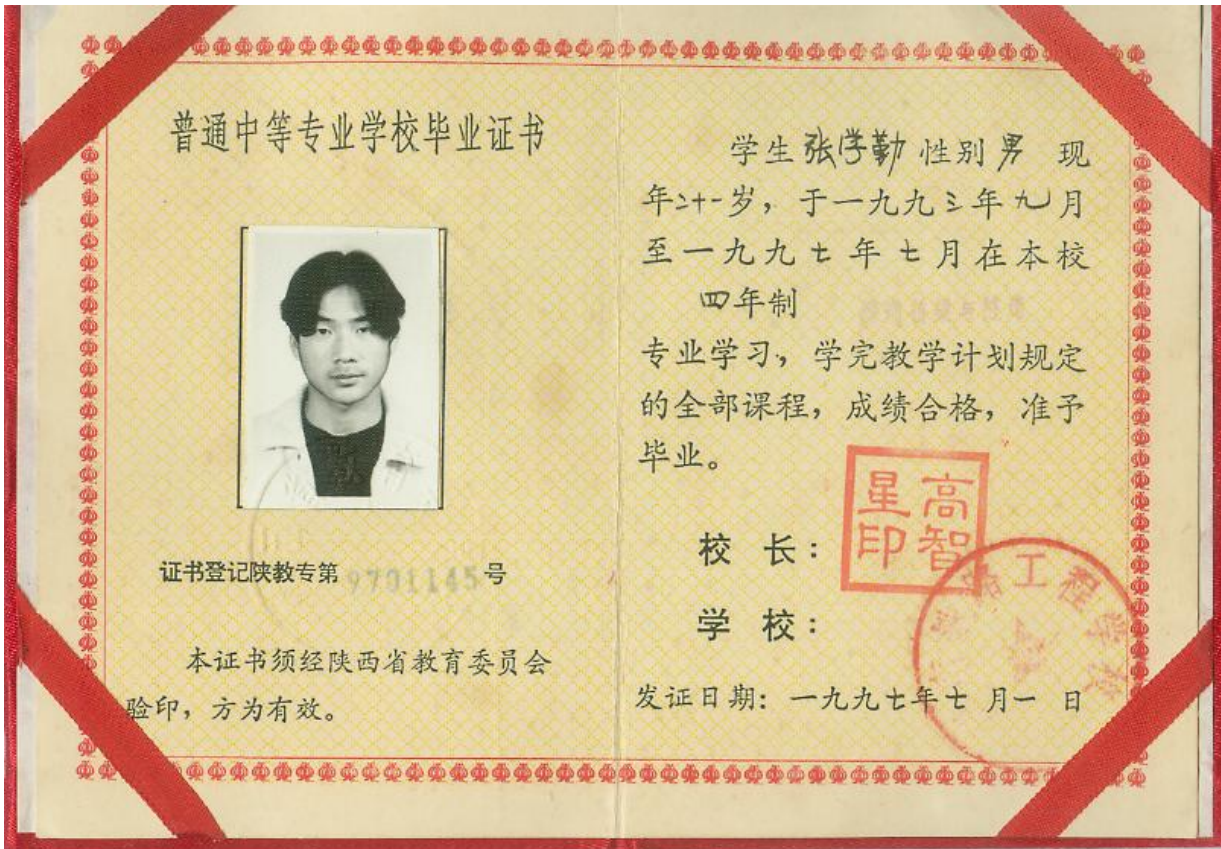 普通中等专业学校毕业证书
证书登记陕教专第9701145号
本证书须经陕西省教育委员会
验印，方为有效。
学生张学勤性别男 现
年二十一岁，于一九九三年九月
至一九九七年七月在本校
四年制
专业学习，学完教学计划规定
的全部课程，成绩合格，准予
毕业。
校 长：
高智星印
学 校：
工程学校
发证日期：一九九七年七月一日